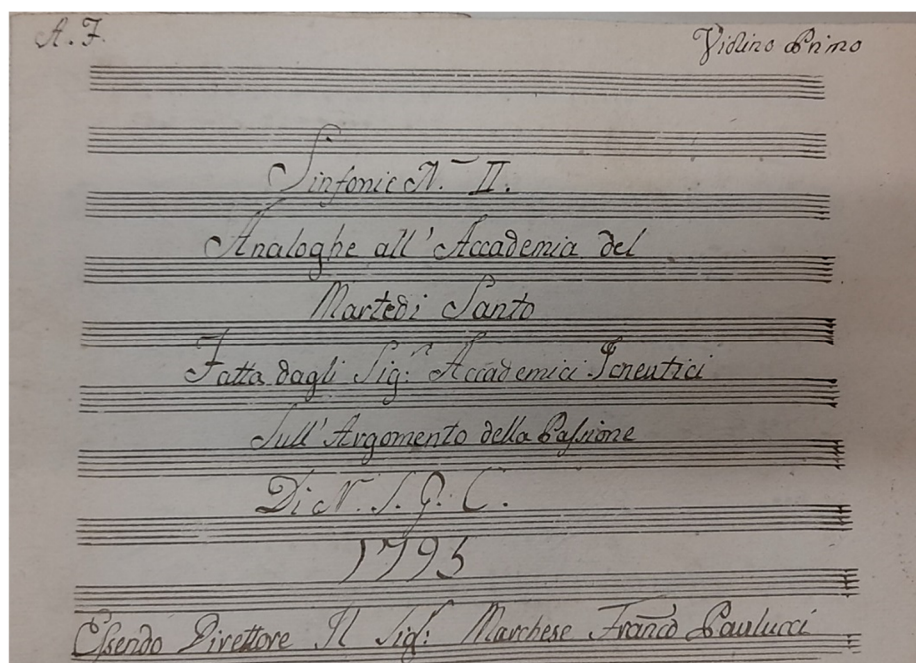 A. F.
Violino Primo
Sinfonie N. II.
Analoghe all' Accademia del
Martedi Santo
Fatta dagli Sig.ʳ Accademici Icneutici
Sull' Argomento della Paſsione
Di N. S. G. C.
1795
Eſsendo Direttore Il Sig.ʳ Marchese Franco Paulucci